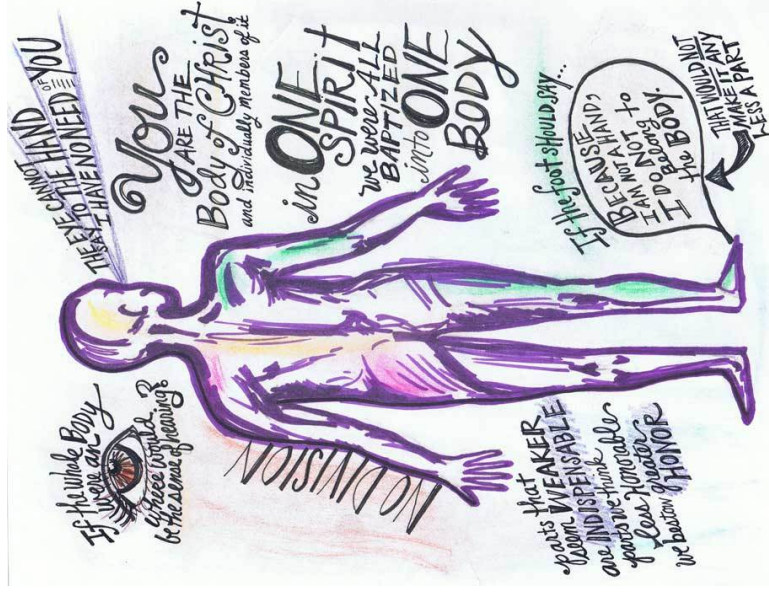 THE EYE CANNOT
SAY TO THE HAND
I HAVE NO NEED OF YOU
YOU
ARE THE
Body of CHRIST
and individually members of it
in ONE
SPIRIT
we were ALL
BAPTIZED
into ONE
BODY
If the foot should SAY...
BECAUSE
I AM NOT A HAND,
I AM NOT
I DO Belong to
the BODY.
THAT WOULD NOT
MAKE IT ANY
LESS A PART
If the whole Body
were an
where would
be the sense of hearing?
NO DIVISION
parts that
seem WEAKER
are INDISPENSABLE
parts we think
less Honorable
we bestow greater
HONOR